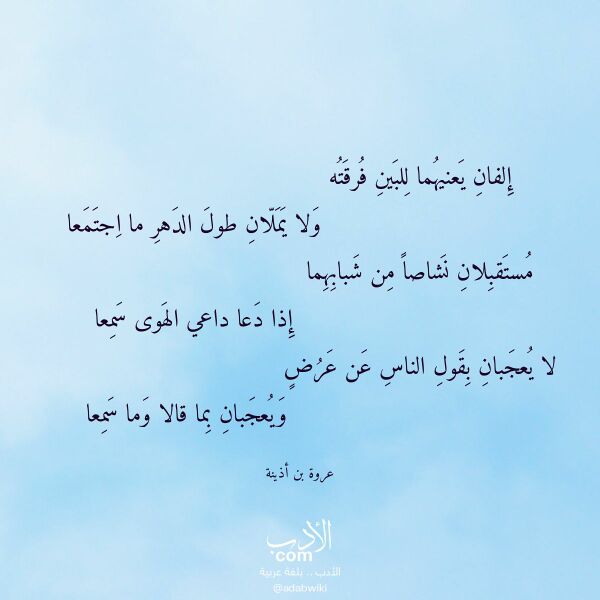 إِلفانِ يَعنيهُما لِلبَينِ فُرقَتُه
وَلا يَمَلّانِ طولَ الدَهرِ ما اِجتَمَعا
مُستَقبِلانِ نَشاصاً مِن شَبابِهِما
إِذا دَعا داعي الهَوى سَمِعا
لا يُعجَبانِ بِقَولِ الناسِ عَن عَرُضٍ
وَيُعجَبانِ بِما قالا وَما سَمِعا
عروة بن أذينة
الأدب
.com
الأدب .. بلغة عربية
@adabwiki